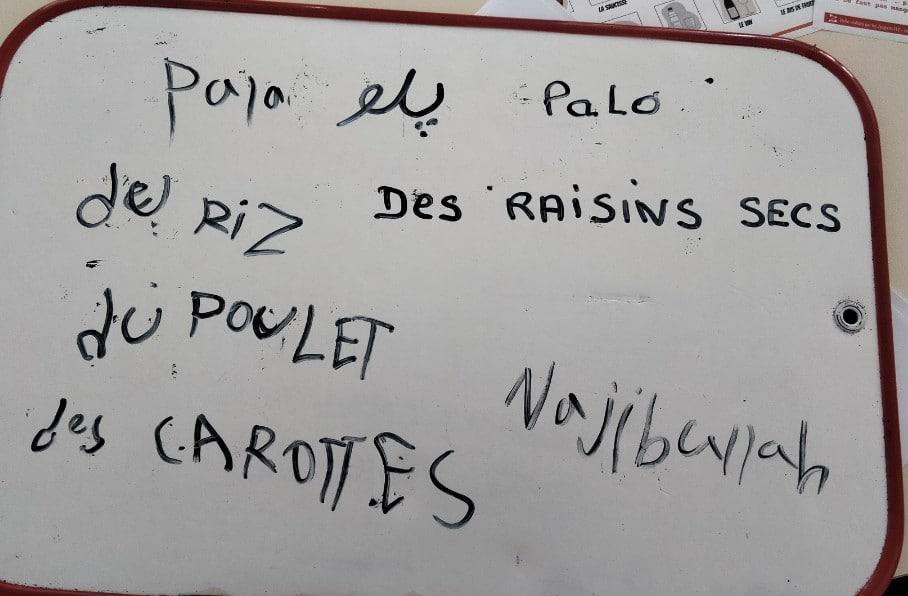 LA SAUCISSE
LE VIN
LE JUS DE FRUITS
Pala پلو PaLo
del RiZ DES RAISINS SECS
du POULET
des CAROTTES
Najibullah